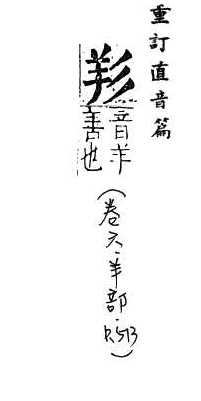 重訂直音篇
音羊
善也
(卷六·羊部·